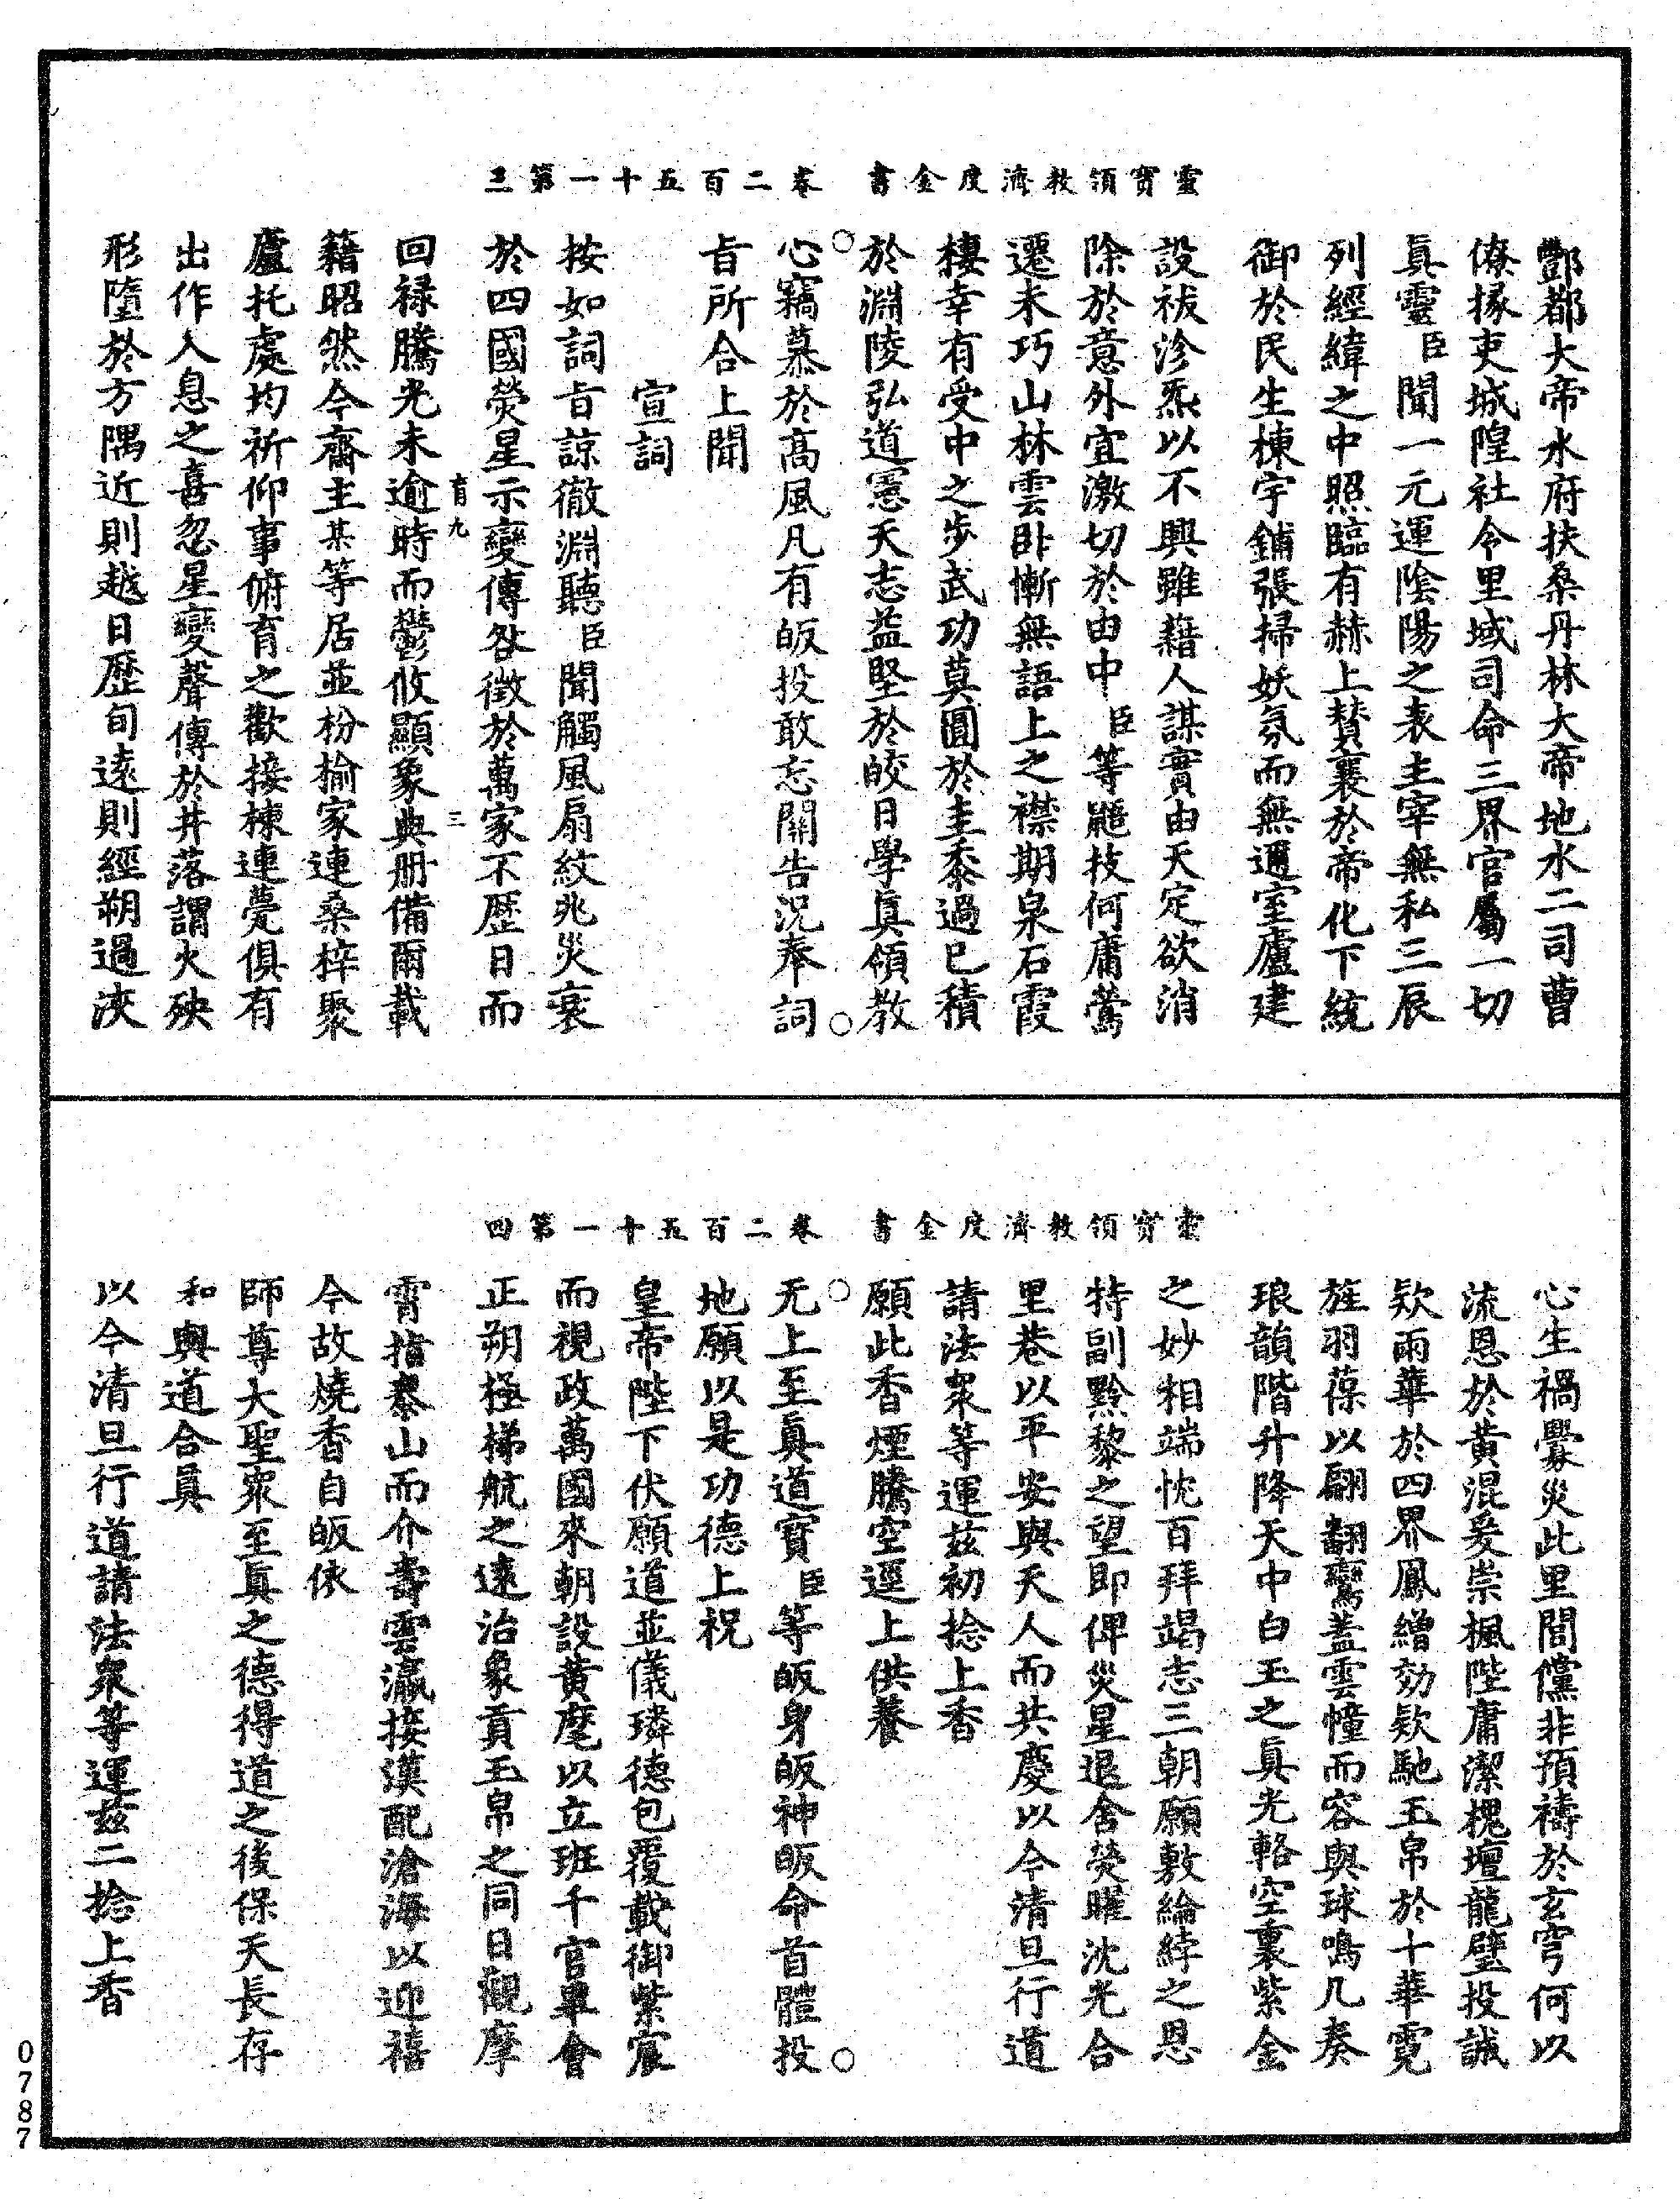 靈寶領教濟度金書　卷二百五十一第三
酆都大帝水府扶桑丹林大帝地水二司曹
僚掾吏城隍社令里域司命三界官屬一切
眞靈臣聞一元運陰陽之表主宰無私三辰
列經緯之中照臨有赫上贊襄於帝化下統
御於民生棟宇鋪張掃妖氛而無邇室廬建
設祓沴炁以不興雖藉人謀實由天定欲消
除於意外宜激切於由中臣等鼯技何庸鶯
遷未巧山林雲卧慚無語上之襟期泉石霞
棲幸有受中之步武功莫圓於圭黍過已積
於淵陵弘道憲天志益堅於皎日學眞領教
心竊慕於高風凡有皈投敢忘關告況奉詞
旨所合上聞
宣詞
按如詞旨諒徹淵聽臣聞觸風扇紋兆災衰
於四國熒星示變傳咎徵於萬家不歷日而
育九　三
回祿騰光未逾時而鬱攸顯象典册備爾載
籍昭然今齋主某等居並枌榆家連桑梓聚
廬托處均祈仰事俯育之歡接棟連甍俱有
出作入息之喜忽星變聲傳於井落謂火殃
形墮於方隅近則越日歷旬遠則經朔過浹
靈寶領教濟度金書　卷二百五十一第四
心生禍釁災此里閭儻非預禱於玄穹何以
流恩於黃混爰崇楓陛庸潔槐壇龍璧投誠
欵雨華於四界鳳繒効欵馳玉帛於十華霓
旌羽葆以翩翻鸞蓋雲幢而容與球鳴几奏
琅韻階升降天中白玉之眞光輅空裏紫金
之妙相端忱百拜竭志三朝願敷綸綍之恩
特副黔黎之望即俾災星退舍熒曜沈光合
里巷以平安與天人而共慶以今清旦行道
請法衆等運茲初捻上香
願此香煙騰空逕上供養
无上至眞道寶臣等皈身皈神皈命首體投
地願以是功德上祝
皇帝陛下伏願道並儀璘德包覆載御紫宸
而視政萬國來朝設黃麾以立班千官畢會
正朔極梯航之遠治象貢玉帛之同日觀摩
霄指泰山而介壽雲瀛接漢配滄海以迎禧
今故燒香自皈依
師尊大聖衆至眞之德得道之後保天長存
和與道合眞
以今清旦行道請法衆等運茲二捻上香
0787